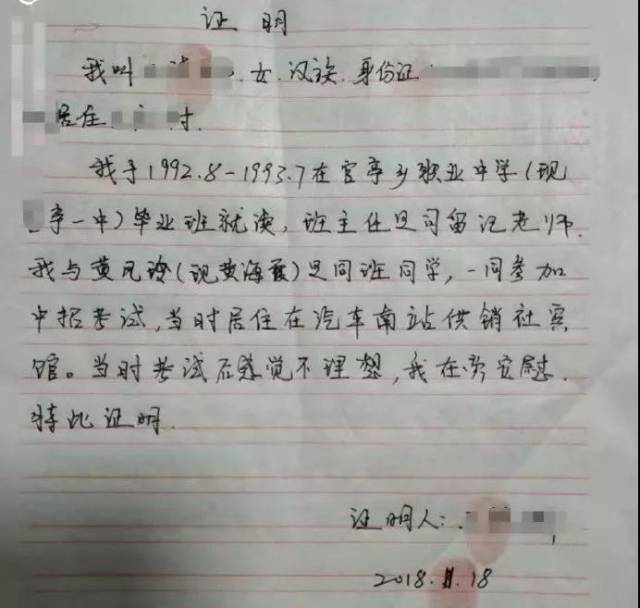 证明
我叫 女.汉族.身份证
居住 村.
我于1992.8-1993.7在官亭乡职业中学(现
亭一中)毕业班就读,班主任是司留记老师.
我与黄凡玲(现黄海霞)是同班同学,一同参加
中招考试,当时居住在汽车南站供销社宾
馆。当时考试后感觉不理想,我在旁安慰.
特此证明.
证明人:
2018.11.18